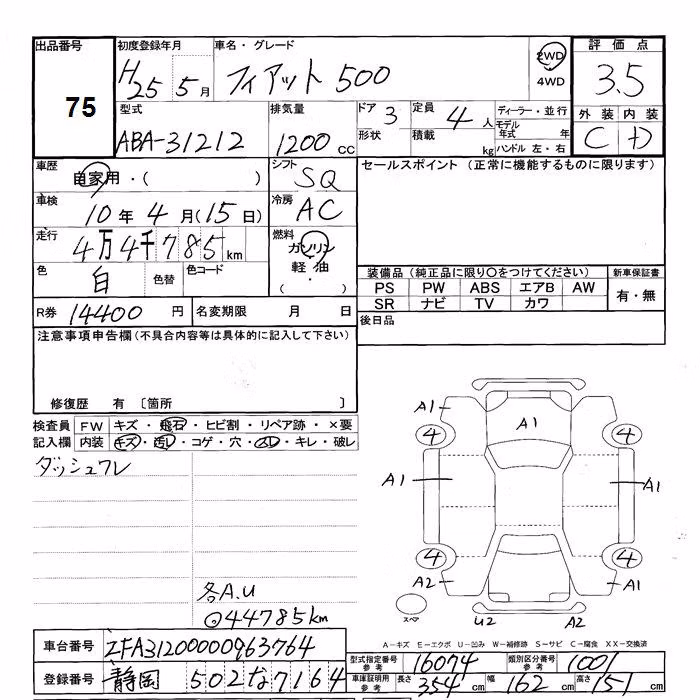 出品番号 75
初度登録年月 H25 5月
車名・グレード フィアット 500
2WD
4WD
評価点 3.5
型式 ABA-31212
排気量 1200 cc
ドア 3 形状
定員 4人
積載 kg
ディーラー・並行
モデル年式 年
ハンドル 左・右
外装 内装
C D
車歴 自家用・( )
シフト SQ
セールスポイント (正常に機能するものに限ります)
車検 10年4月(15日)
冷房 AC
走行 4万4千785km
燃料 ガソリン
軽油
・( )
色 白 色替 色コード
装備品(純正品に限り〇をつけてください) 新車保証書
PS PW ABS エアB AW 有・無
SR ナビ TV カワ
R券 14400 円 名変期限 月 日
後日品
注意事項申告欄(不具合内容等は具体的に記入して下さい)
修復歴 有 〔箇所 〕
検査員 FW キズ・飛石・ヒビ割・リペア跡・×要
記入欄 内装 キズ・汚レ・コゲ・穴・スレ・キレ・破レ
ダッシュフレ
各A.U
44785km
A1 A1
4 4
A1 A1
4 4
A2 A1
スペア U2 A2
A−キズ E−エクボ U−凹み W−補修跡 S−サビ C−腐食 XX−交換済
車台番号 ZFA31200000963764
型式指定番号 参考 16074 類別区分番号 参考 1001
登録番号 静岡 502な7164
車庫証明用 参考 長さ 354cm 幅 162cm 高さ 151cm